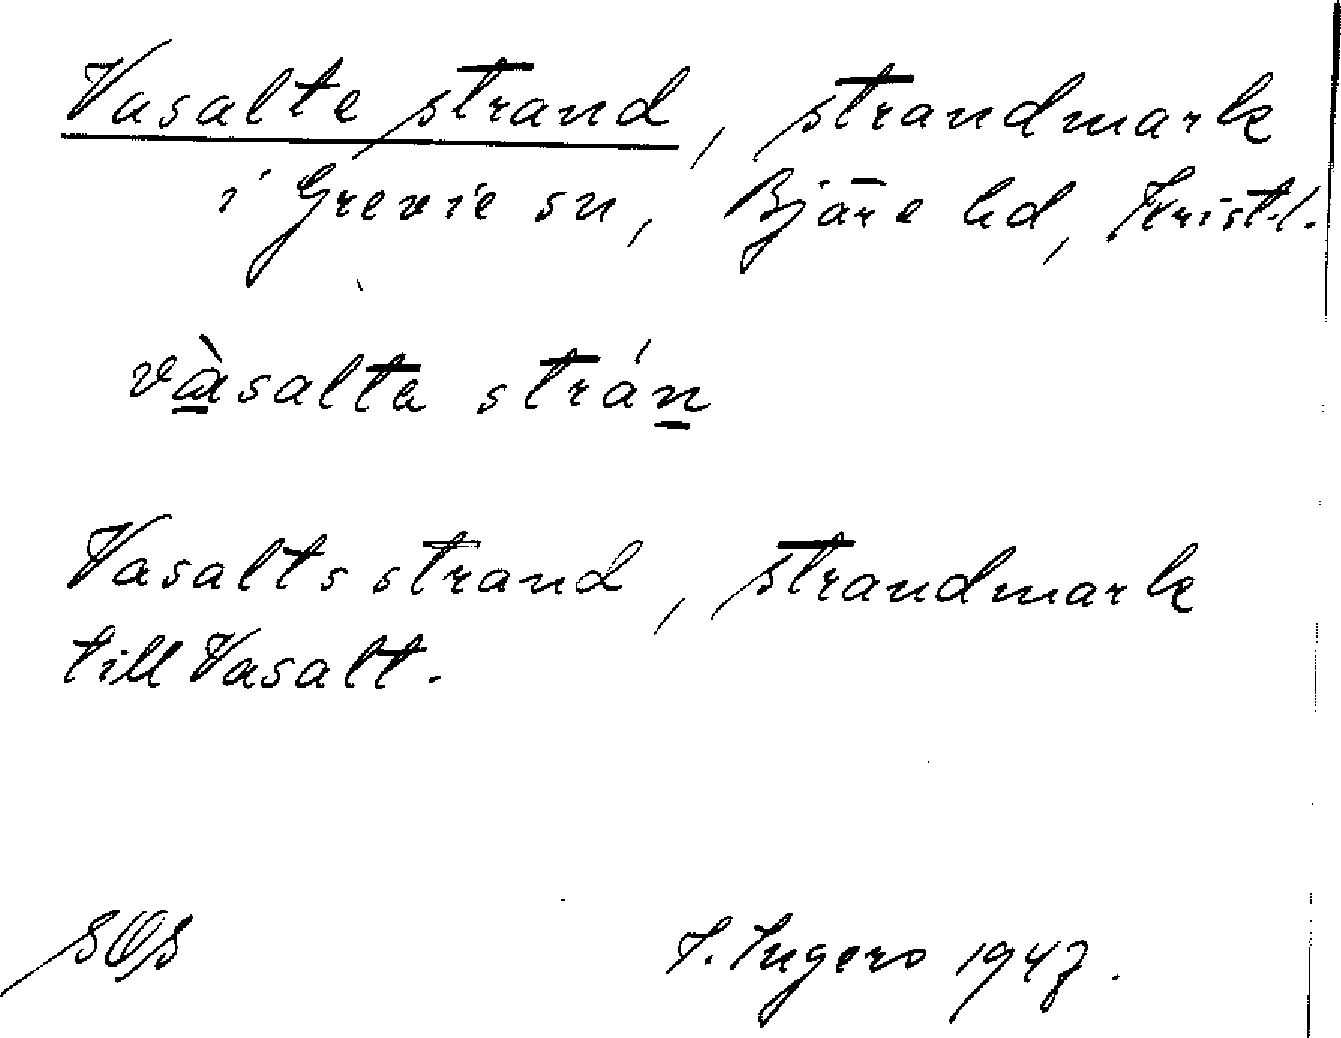 Vasalte strand, strandmark
i Grevie sn, Bjäre hd, Krist.l.
vàsalta strán
Vasalts strand, strandmark
till Vasalt.
SOS I. Ingers 1947.